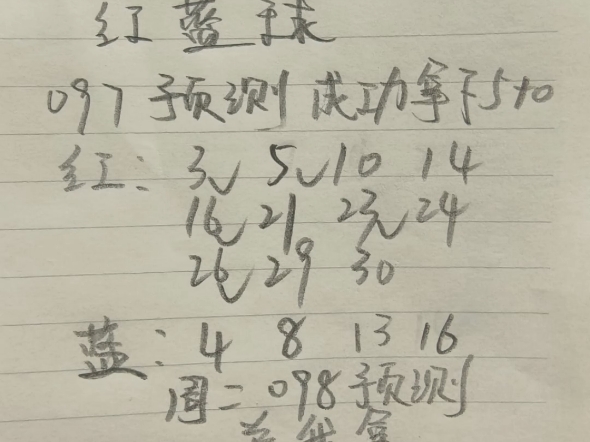 红蓝球
097预测成功拿下5+0
红: 3✓ 5✓ 10 14
16✓ 21 23✓ 24
26✓ 29 30
蓝: 4 8 13 16
周二098预测